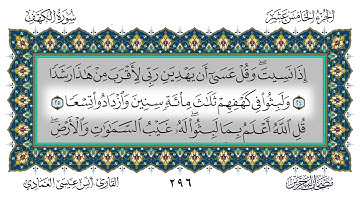 الجزء الخامس عشر
سورة الكهف
إِذَا نَسِيتَ وَقُلْ عَسَىٰٓ أَن يَهْدِيَنِ رَبِّى لِأَقْرَبَ مِنْ هَٰذَا رَشَدًا
٢٤ وَلَبِثُوا۟ فِى كَهْفِهِمْ ثَلَٰثَ مِا۟ئَةٍ سِنِينَ وَٱزْدَادُوا۟ تِسْعًا ٢٥
قُلِ ٱللَّهُ أَعْلَمُ بِمَا لَبِثُوا۟ لَهُۥ غَيْبُ ٱلسَّمَٰوَٰتِ وَٱلْأَرْضِ
٢٩٦
القارئ: أنس عيسى العمادي